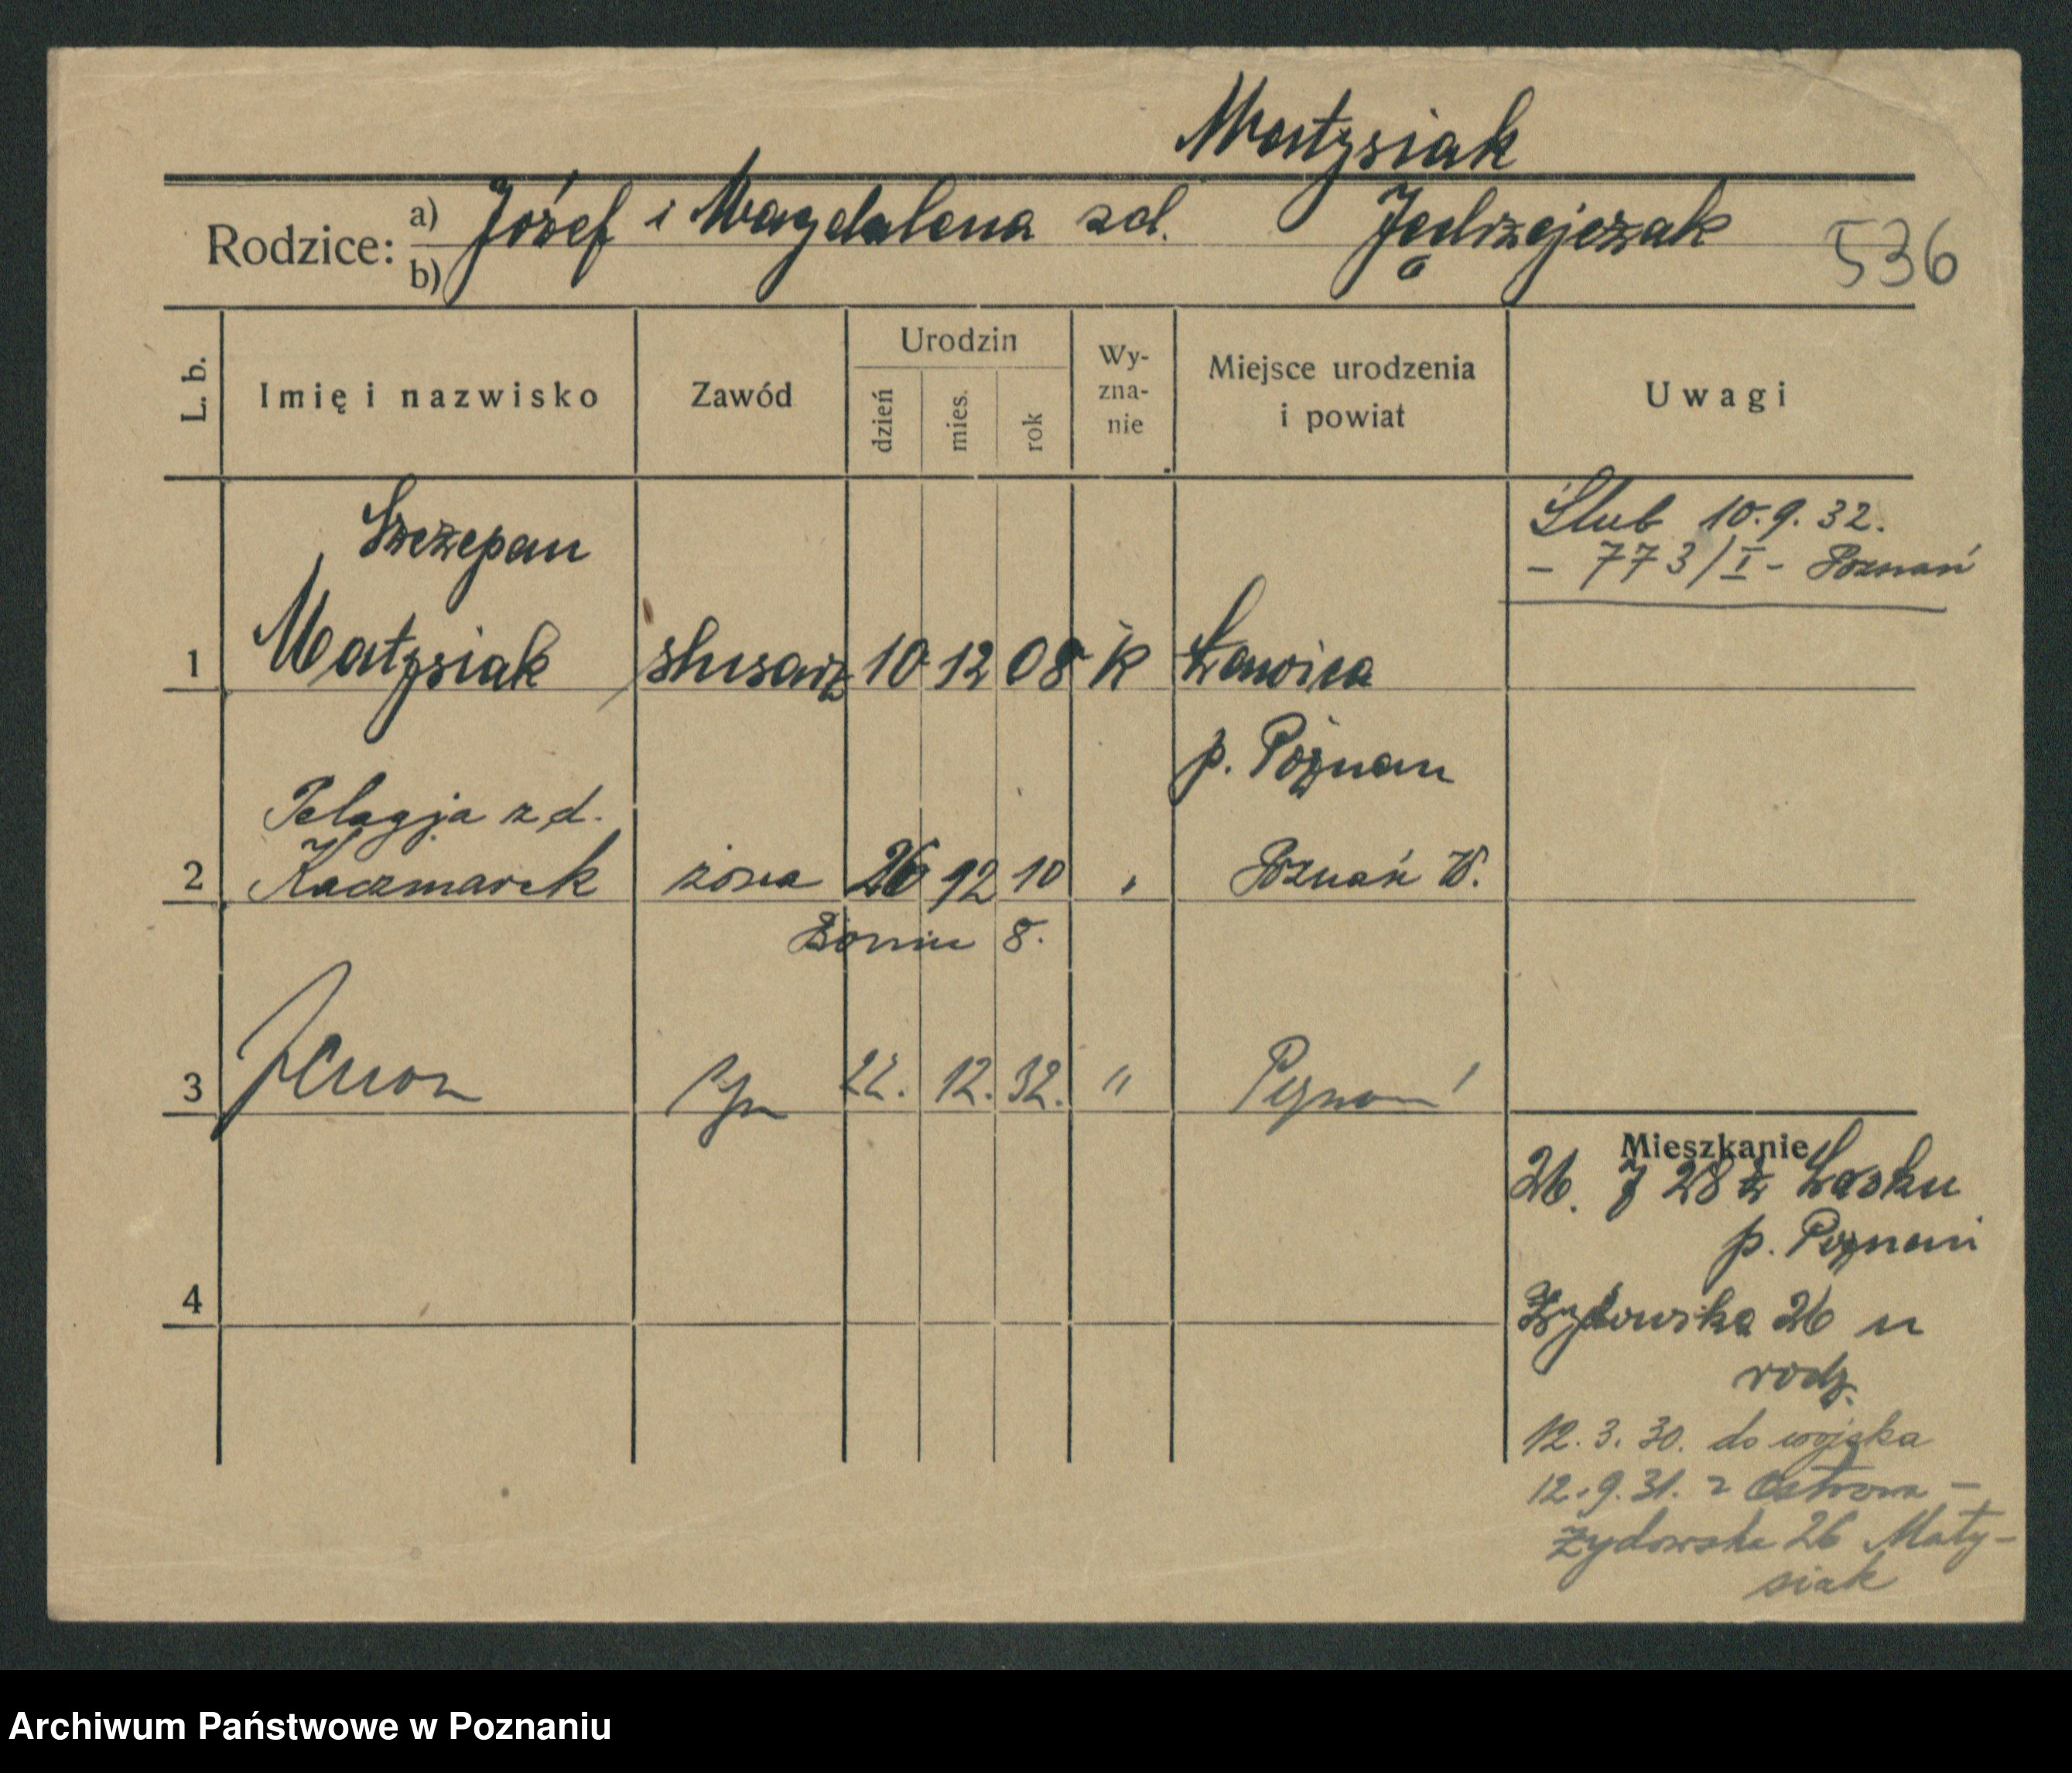 Matysiak
Rodzice: a) Józef i Magdalena zd. Jędrzejczak
b)
536
L. b. Imię i nazwisko Zawód Urodzin dzień mies. rok Wy-zna-nie Miejsce urodzenia i powiat Uwagi
Ślub 10.9.32.
- 773/I - Poznań
Szczepan
1 Matysiak ślusarz 10 12 08 k Ławica
p. Poznań
Pelagja z d.
2 Kaczmarek żona 26 12 10 " Poznań W.
8.
3 Zenon syn 22. 12. 32. " Poznań
4
Mieszkanie
26. 7 28 z Lasku
p. Poznań
Żydowska 26 u
rodz.
12.3.30. do wojska
12.9.31. z Ostrowa -
Żydowska 26 Maty-
siak
Archiwum Państwowe w Poznaniu